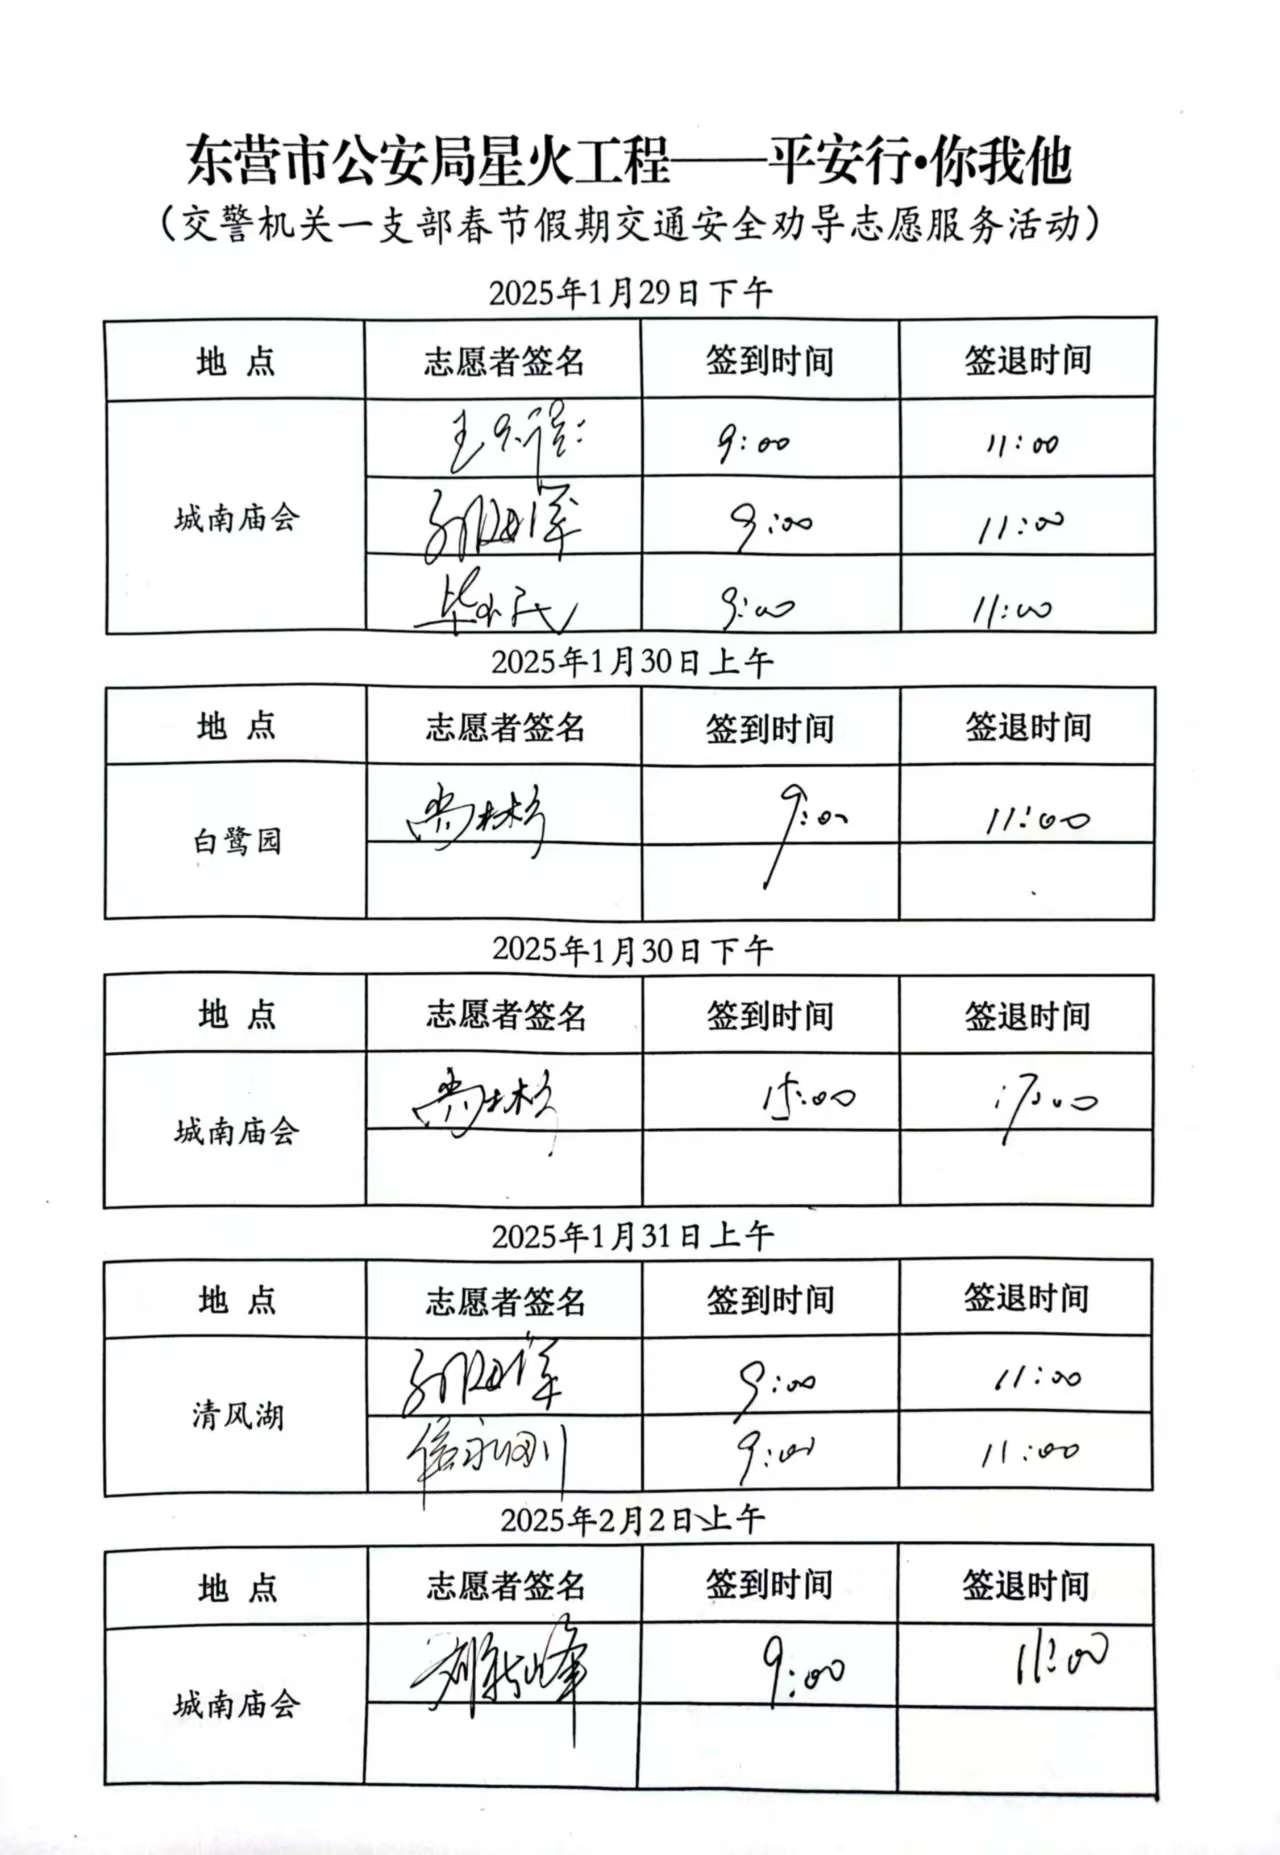 东营市公安局星火工程——平安行·你我他
（交警机关一支部春节假期交通安全劝导志愿服务活动）
2025年1月29日下午
地 点 志愿者签名 签到时间 签退时间
9:00 11:00
城南庙会 9:00 11:00
毕 9:00 11:00
2025年1月30日上午
地 点 志愿者签名 签到时间 签退时间
白鹭园 尚林杉 9:00 11:00
2025年1月30日下午
地 点 志愿者签名 签到时间 签退时间
城南庙会 尚林杉 15:00 17:00
2025年1月31日上午
地 点 志愿者签名 签到时间 签退时间
清风湖 9:00 11:00
信永刚 9:00 11:00
2025年2月2日上午
地 点 志愿者签名 签到时间 签退时间
城南庙会 9:00 11:00